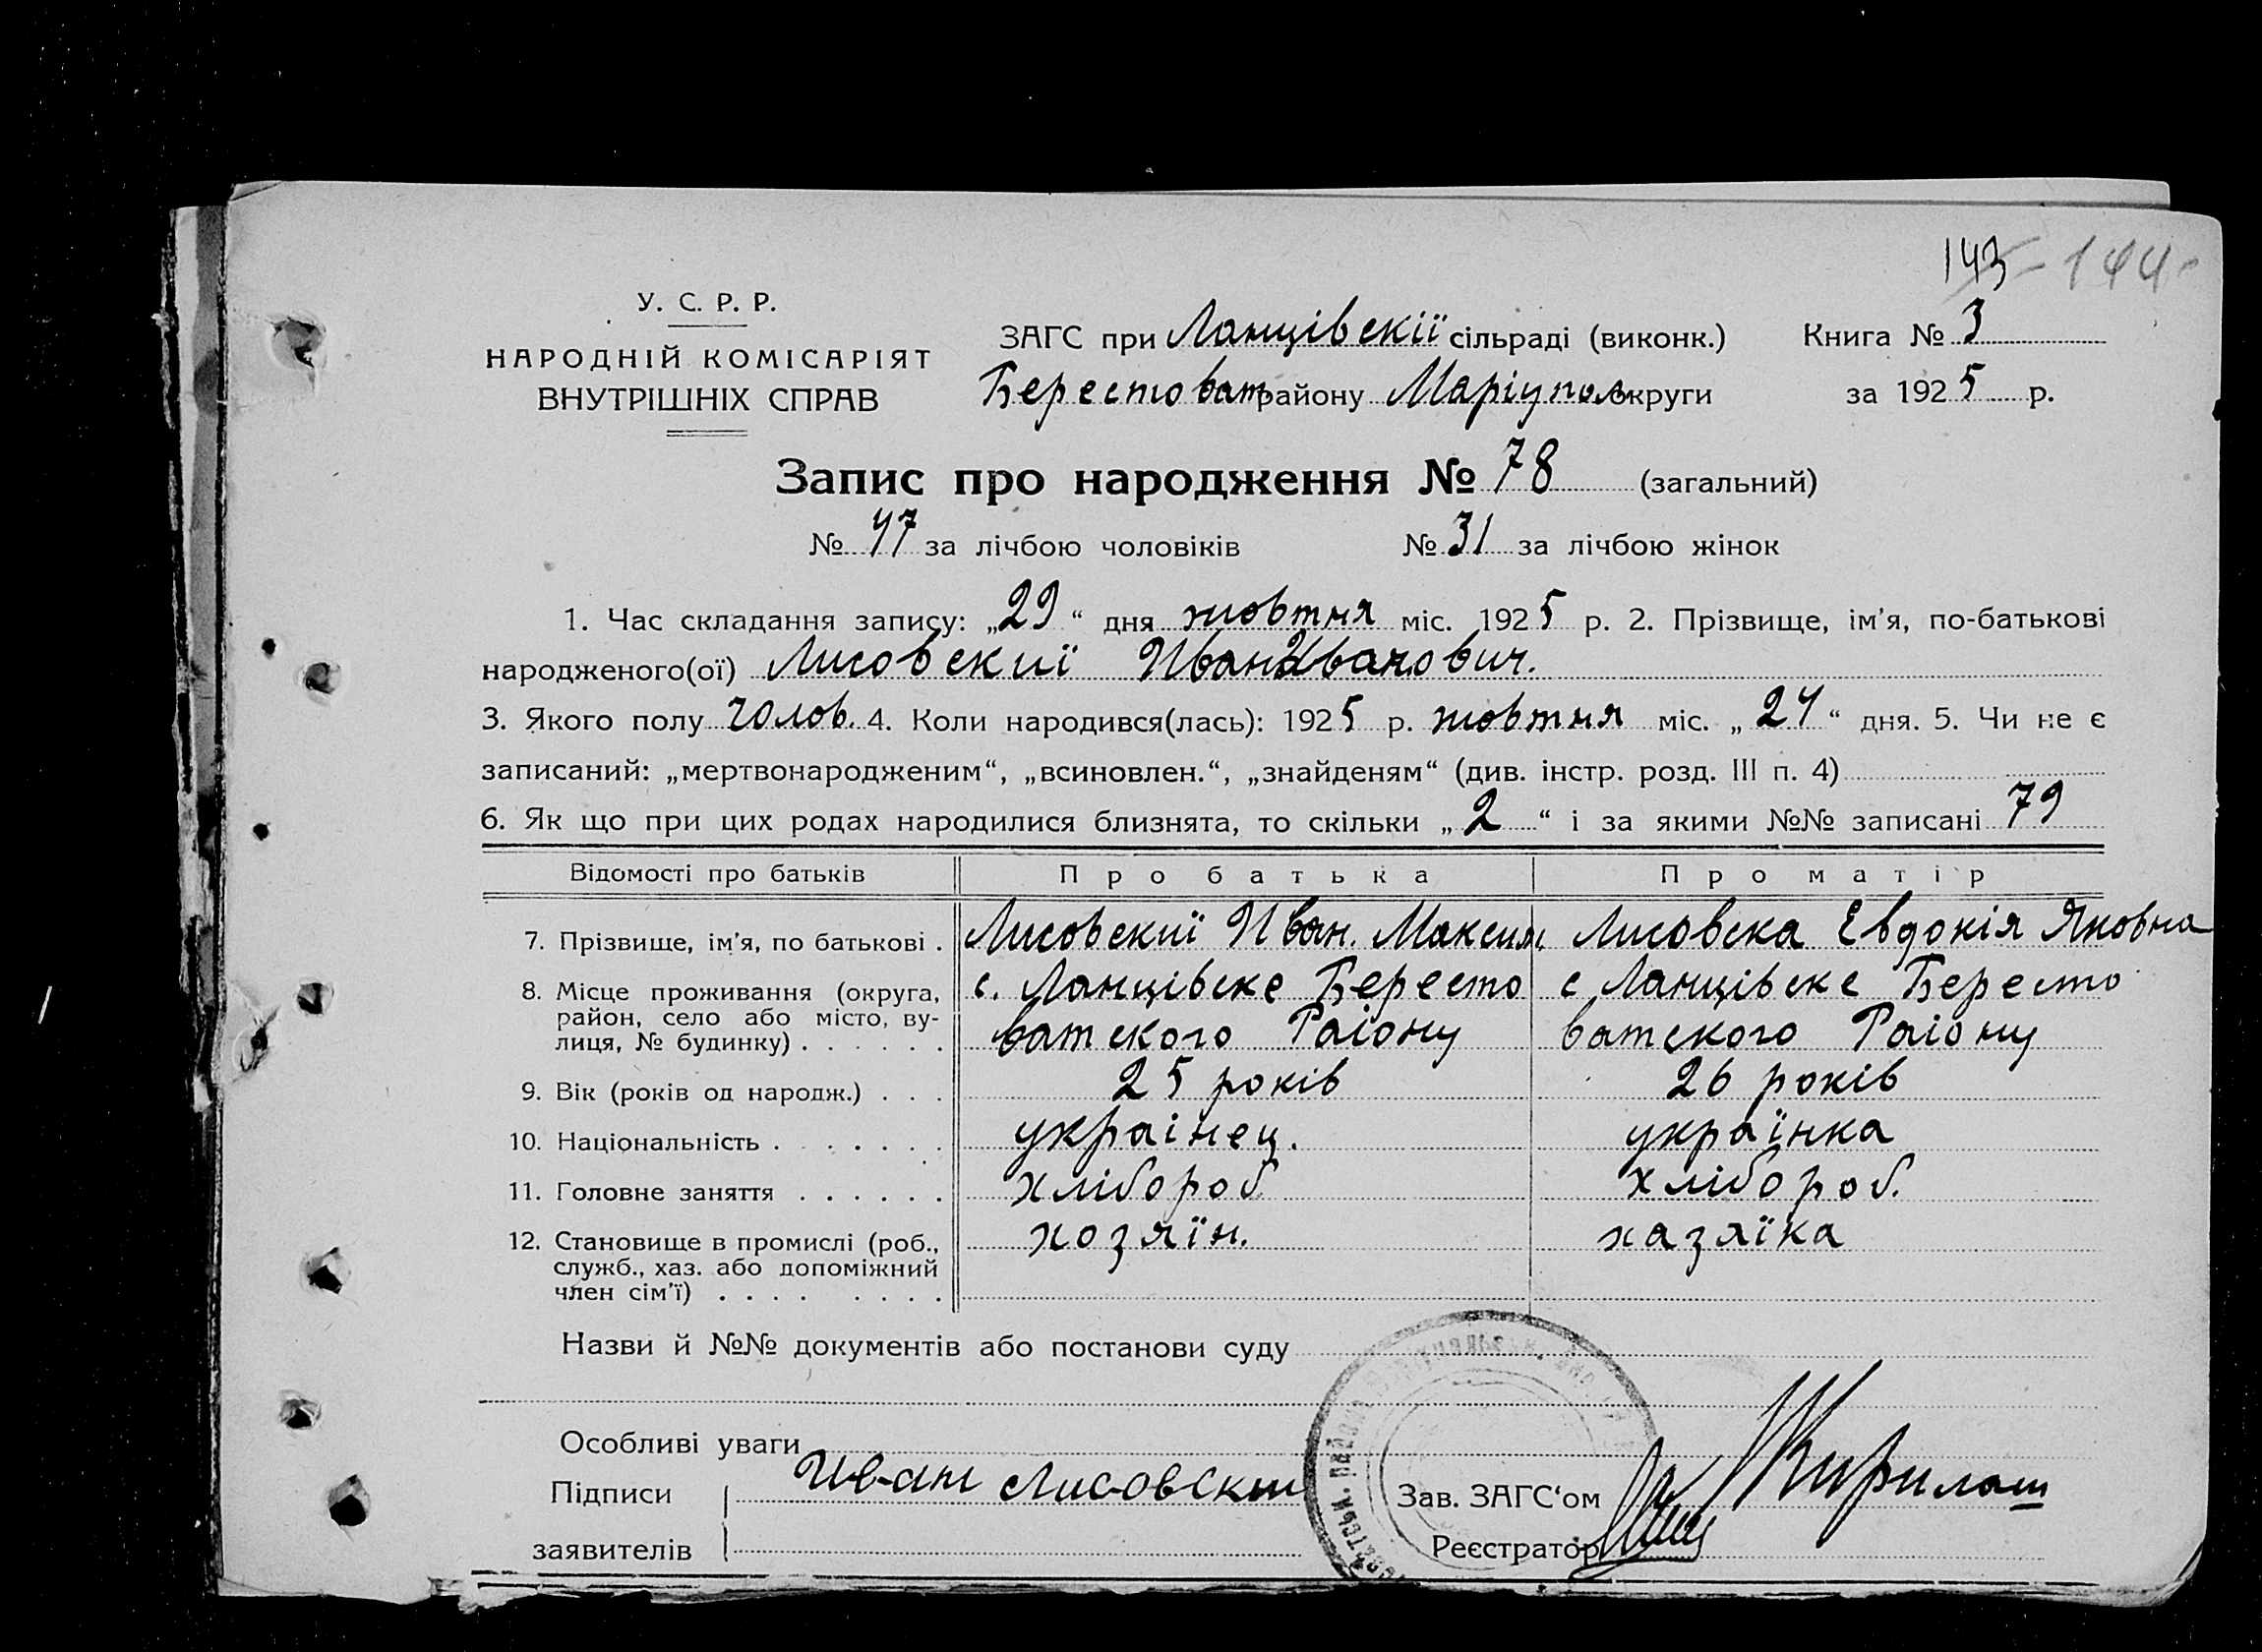 143 - 144
У. С. Р. Р.
НАРОДНІЙ КОМІСАРІЯТ
ВНУТРІШНІХ СПРАВ
ЗАГС при Ланцівскії сільраді (виконк.) Книга № 3
Берестоват району Маріупол округи за 1925 р.
Запис про народження № 78 (загальний)
№ 47 за лічбою чоловіків № 31 за лічбою жінок
1. Час складання запису: „29“ дня жовтня міс. 1925 р. 2. Прізвище, ім'я, по-батькові
народженого(ої) Лисовскиї Иван Иванович.
3. Якого полу чолов. 4. Коли народився(лась): 1925 р. жовтня міс. „24“ дня. 5. Чи не є
записаний: „мертвонародженим“, „всиновлен.“, „знайденям“ (див. інстр. розд. III п. 4)
6. Як що при цих родах народилися близнята, то скільки „2“ і за якими №№ записані 79
Відомості про батьків Про батька Про матір
7. Прізвище, ім'я, по батькові . Лисовскиї Иван. Максим. Лисовска Евдокія Яковна
8. Місце проживання (округа, с. Ланцівске Бересто с Ланцівске Бересто
район, село або місто, ву-
лиця, № будинку) . . . . . . ватского Раіону ватского Раіону
9. Вік (років од народж.) . . . 25 років 26 років
10. Національність . . . . . . . украінец. українка
11. Головне заняття . . . . . . хлібороб хлібороб.
12. Становище в промислі (роб., хозяїн. хазяїка
служб., хаз. або допоміжний
член сім'ї) . . . . . . . .
Назви й №№ документів або постанови суду
Особливі уваги
Підписи Иван Лисовски Зав. ЗАГС‘ом Кирилаш
заявителів Реєстратор